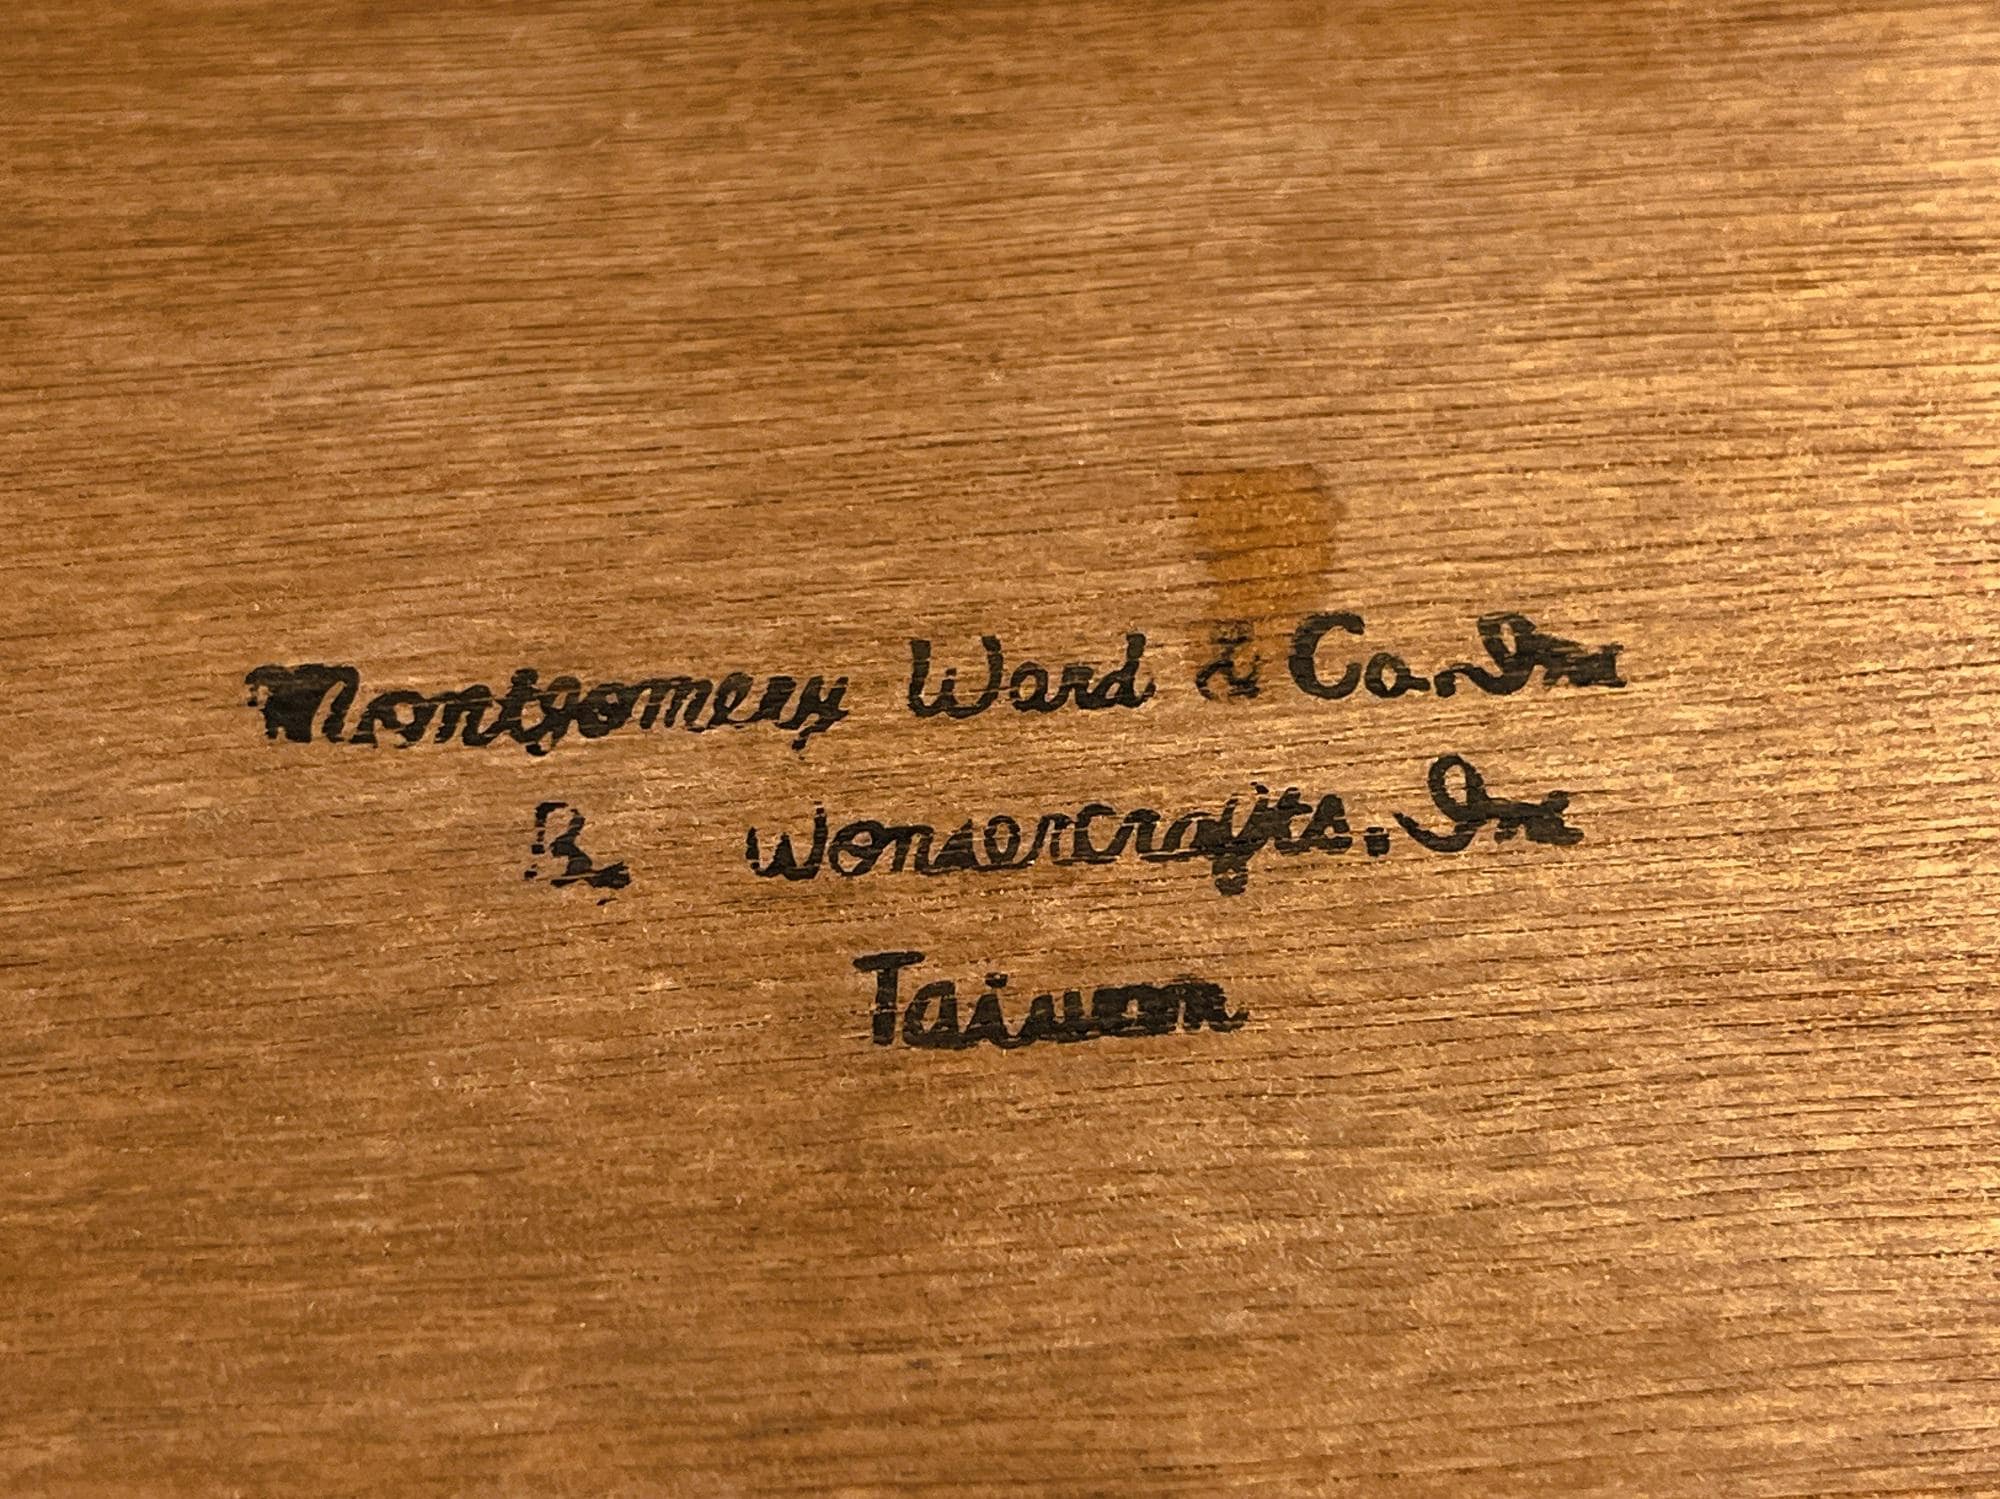 Montgomery Ward & Co. Inc
By Wondercrafts. Inc
Taiwan